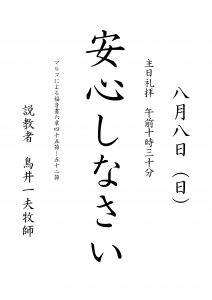 八月八日（日）
主日礼拝　午前十時三十分
安心しなさい
マルコによる福音書六章四十五節―五十二節
説教者　鳥井一夫牧師